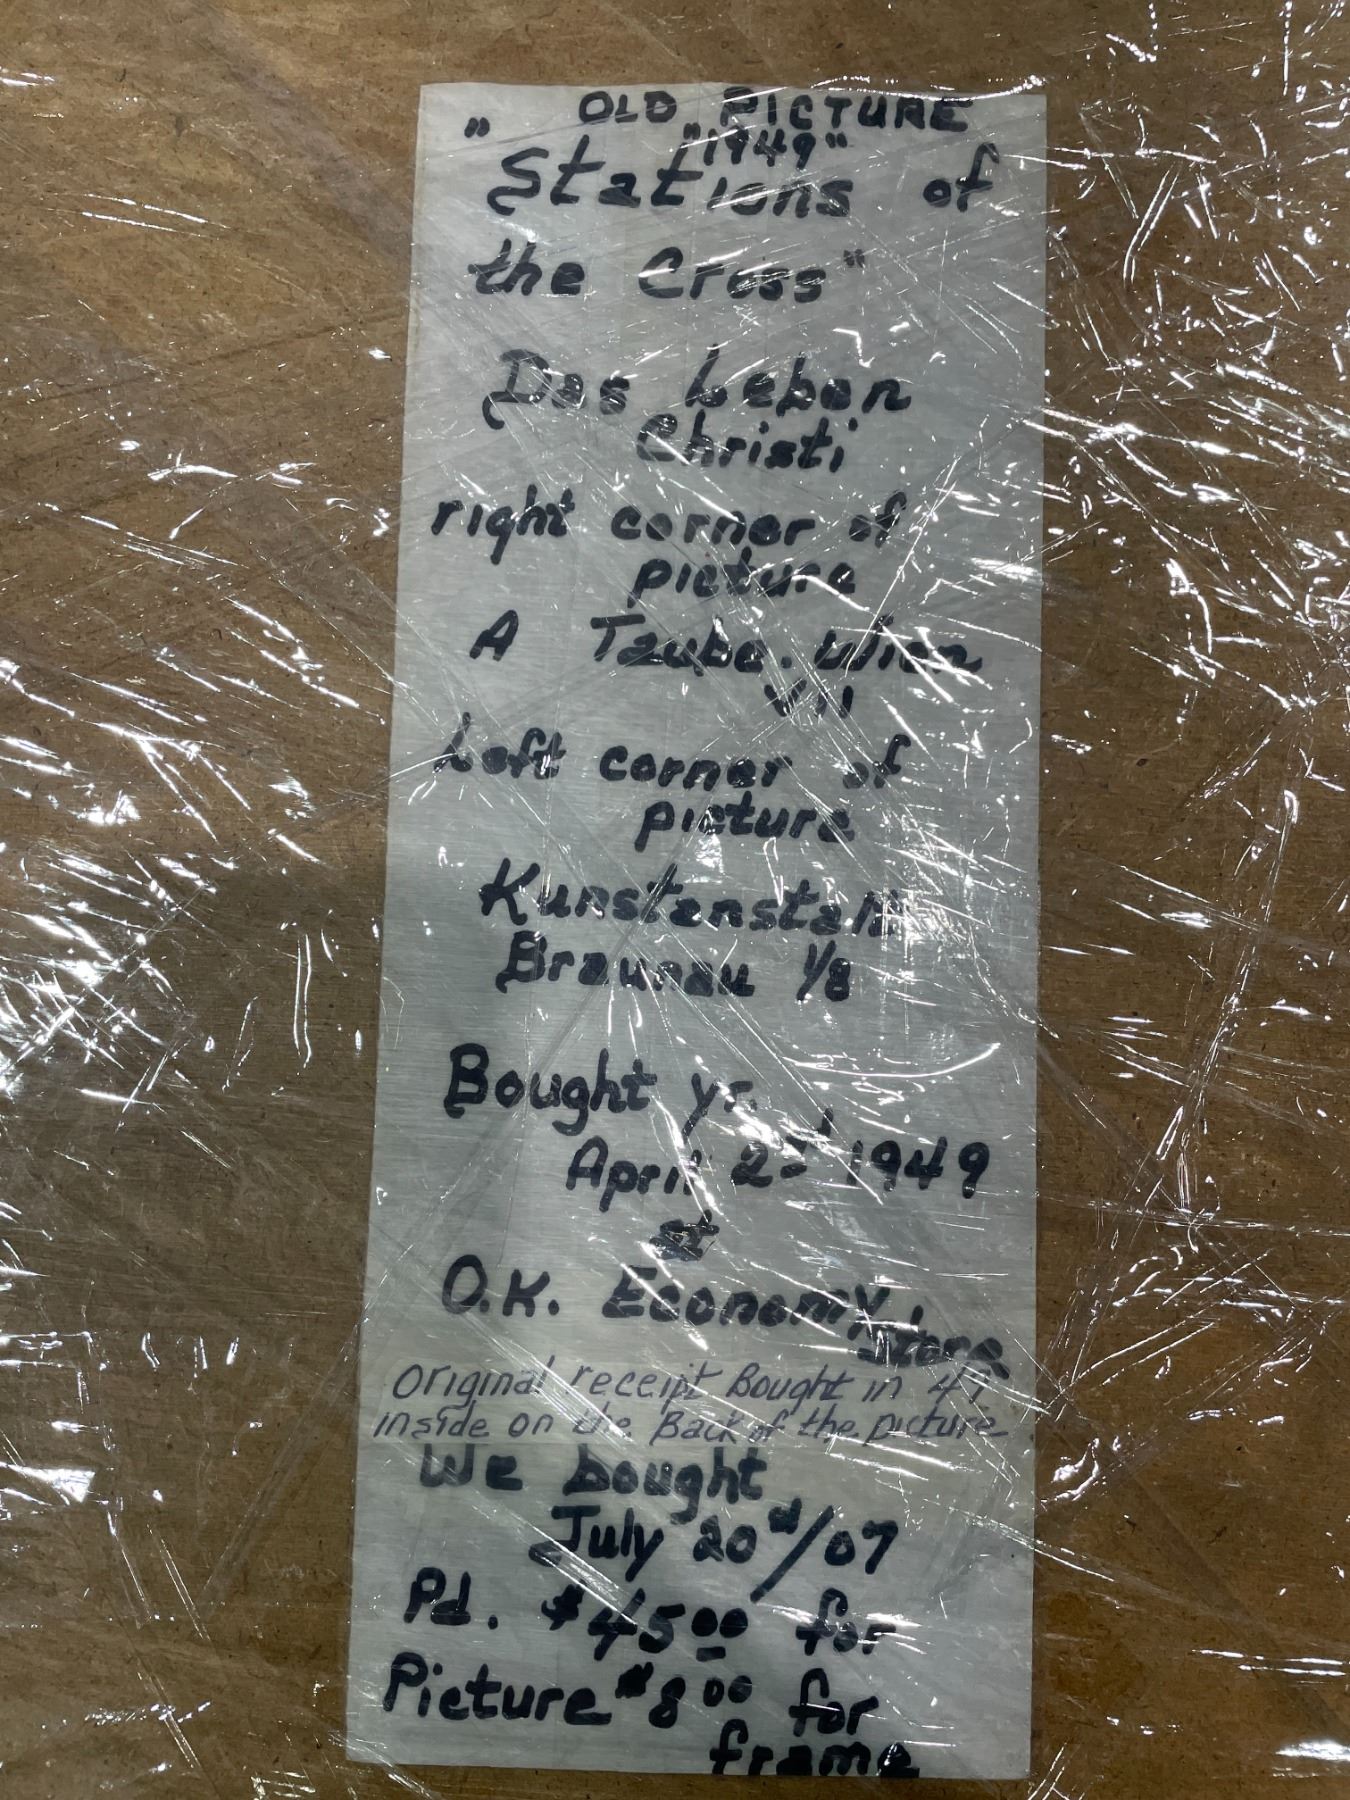 OLD PICTURE
"1949"
" Stations of
the Cross"
Das Leben
Christi
right corner of
picture
A Taube. Wien
VII
Left corner of
picture
Kunstanstalt
Braunau 1/8
Bought yr.
April 2nd 1949
at
O.K. Economy
Store
Original receipt Bought in 49
inside on the Back of the picture
We bought
July 20d/07
Pd. $45.00 for
Picture $8.00 for
frame